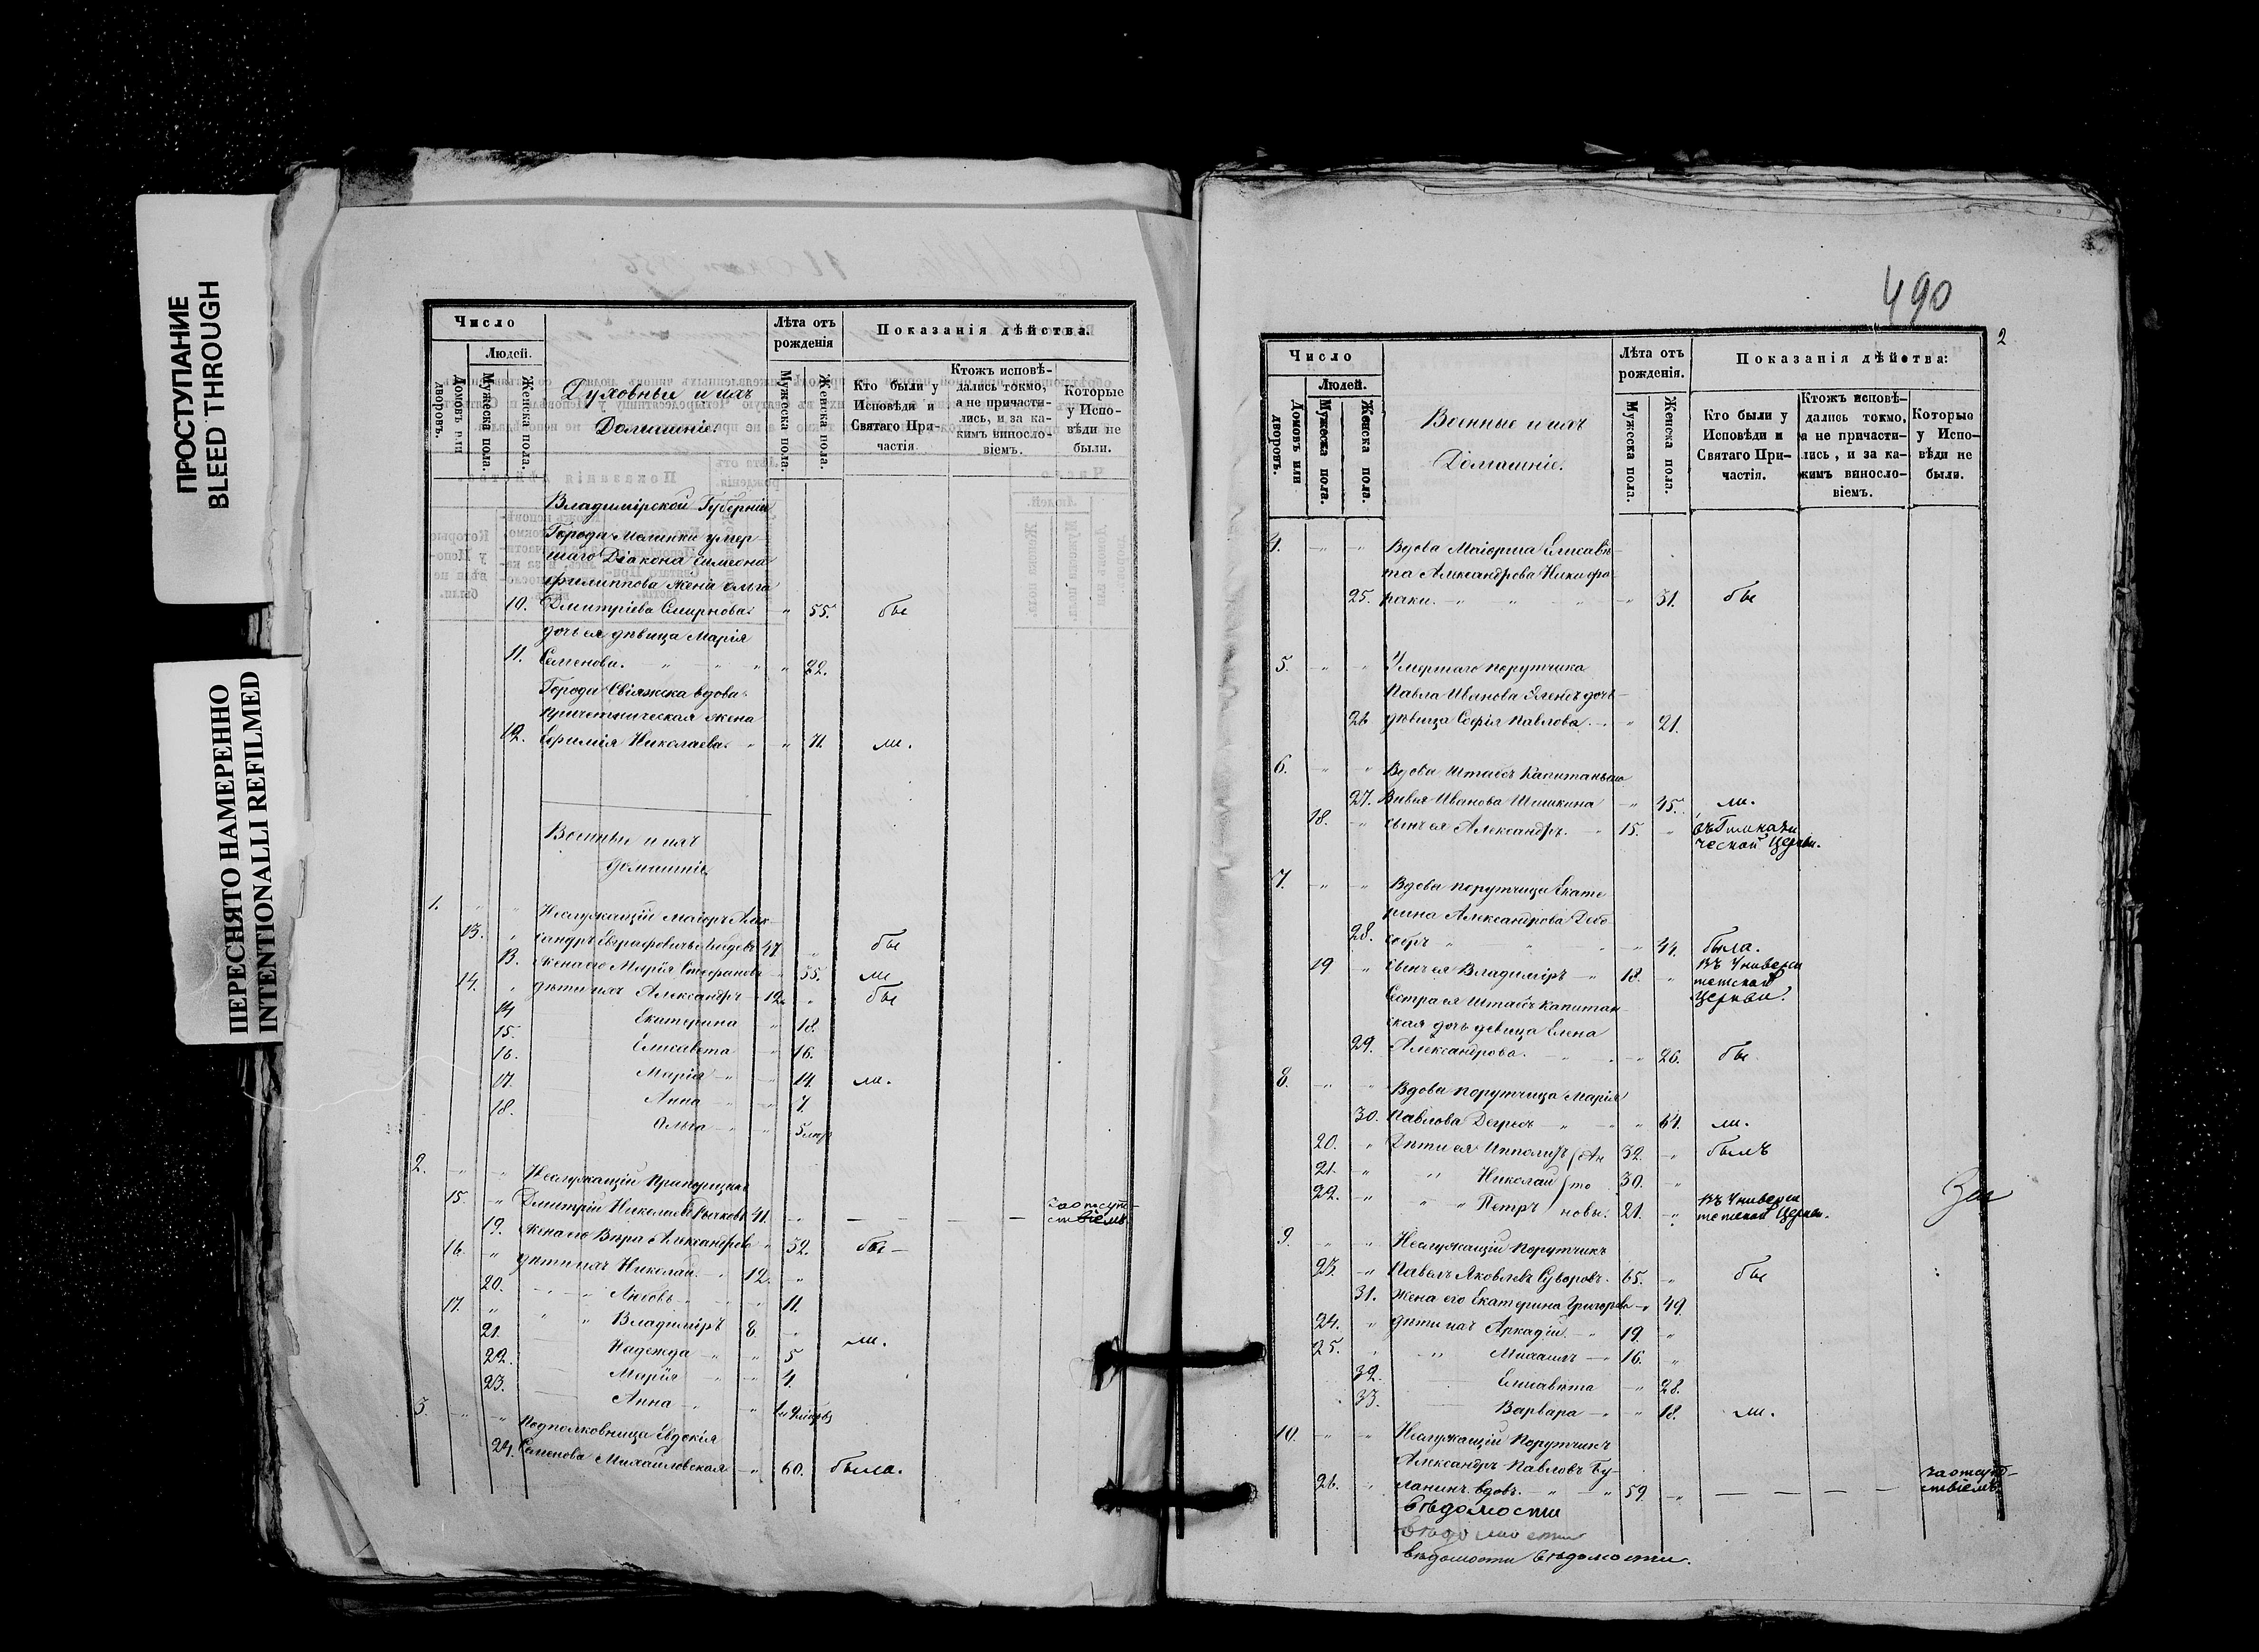 ПРОСТУПАНИЕ
BLEED THROUGH
ПЕРЕСНЯТО НАМЕРЕННО
INTENTIONALLI REFILMED
Число
Людей.
Домовъ или дворовъ.
Мужеска пола.
Женска пола.
Духовные и ихъ
Домашніе.
Лѣта отъ рожденія
Мужеска пола.
Женска пола.
Показанія дѣйства.
Кто были у Исповѣди и Святаго Причастія.
Ктожъ исповѣ-
дались токмо,
а не причасти-
лись, и за ка-
кимъ виносло-
віемъ.
Которые
у Испо-
вѣди не
были.
Владимірской Губерніи
Города Меленки умер-
шаго Діакона Симеона
Филиппова жена Ольга
10. Дмитріева Смирнова. " 55. бы
дочь ея дѣвица Марія
11. Семенова. " " 22.
Города Свіяжска вдова
причетническая жена
12. Евфимія Николаева. " " 71. ли.
Военные и ихъ
домашніе
1. Неслужащій Маіоръ Алек-
13. сандръ Евграфовичъ 47. " бы
13. жена его Марія Стефанова 35. ли
14. дѣти ихъ Александръ 12. " бы
14 Екатерина " 18.
15. Елисавета " 16.
16. Марія " 14. ли.
17. Анна " 7.
18. Ольга "
2. Неслужащій Прапорщикъ
15. Дмитрій Николаевъ 41. " за отсут-
ствіемъ
19. жена его Вѣра Александрова " 32. бы
16. дѣти ихъ Николай " 12. "
20. Любовь " 11.
17. Владиміръ 8. "
21. Надежда " 5 ли.
22. Марія " 4.
23. Анна "
3. Подполковница Евдокія
24. Семенова Михайловская " 60. была.
490
2
Число
Людей.
Домовъ или дворовъ.
Мужеска пола.
Женска пола.
Военные и ихъ
Домашніе.
Лѣта отъ рожденія.
Мужеска пола.
Женска пола.
Показанія дѣйства:
Кто были у Исповѣди и Святаго Причастія.
Ктожъ исповѣ-
дались токмо,
а не причасти-
лись, и за ка-
кимъ виносло-
віемъ.
Которые
у Испо-
вѣди не
были.
4. Вдова Маіорша Елисаве-
та Александрова Никифо-
25. раки. " 51. бы
5. Умершаго порутчика
Павла Иванова дочь
26 дѣвица Софія Павлова. " 21.
6. Вдова Штабсъ Капитанша
27. Иванова Шишкина " 45. ли.
18. сынъ ея Александръ. 15. " въ Гимнази
ческой Церкви.
7. Вдова порутчица Екате
рина Александрова
28. " 44. была.
19 сынъ ея Владиміръ 18. " въ Универси
тетской
Церкви.
Сестра ея Штабсъ капитан-
ская дочь девица Елена
29. Александрова. " 26. бы
8. Вдова порутчица Марія
30. Павлова " 64. ли.
20. Дѣти ея Ипполитъ Ан 32. " былъ
21. " Николай то 30. "
22. " Петръ новы. 21. " въ Универси
тетской Церкви.
9. Неслужащій Порутчикъ
23. Павелъ Яковлевъ Суворовъ. 65. " бы
31. жена его Екатерина Григорьева " 49.
24. дѣти ихъ Аркадій 19. "
25. " Михаилъ 16. "
32. Елисавета " 28.
33. Варвара " 18. ли.
10. Неслужащій Порутчикъ
Александръ Павловъ Бу-
26. ланинъ вдовъ. " 59. " за отсут-
ствіемъ.
вѣдомости
вѣдомости
вѣдомости вѣдомости.